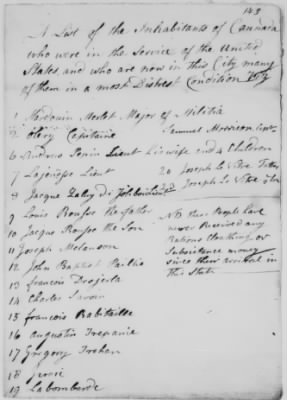 143
A List of the Inhabitants of Cannada
who were in the Service of the United
States, and who are now in this City many
of them in a most Distrest Condition
1 Hardouin Merlet Major of Militia
2 Olory Capitaine
Samuel Morrison
6 Andreas Penin Lieut his wife and 4 Children
7 Lajeunesse Lieut
20 Joseph Le Vitre
Joseph Le Vitre
8 Jacque
9 Louis Rousse the father
10 Jaque Rousse the Son
11 Joseph Melanson
12 John Baptist
13 francois
14 Charles
15 francois Rabitaille
16 augustin Trepanie
17 Gregory Strahan
18
19 Labombarde
NB these People have
never Received any
Rations Cloathing or
Subsistence money
since their arrival in
this State